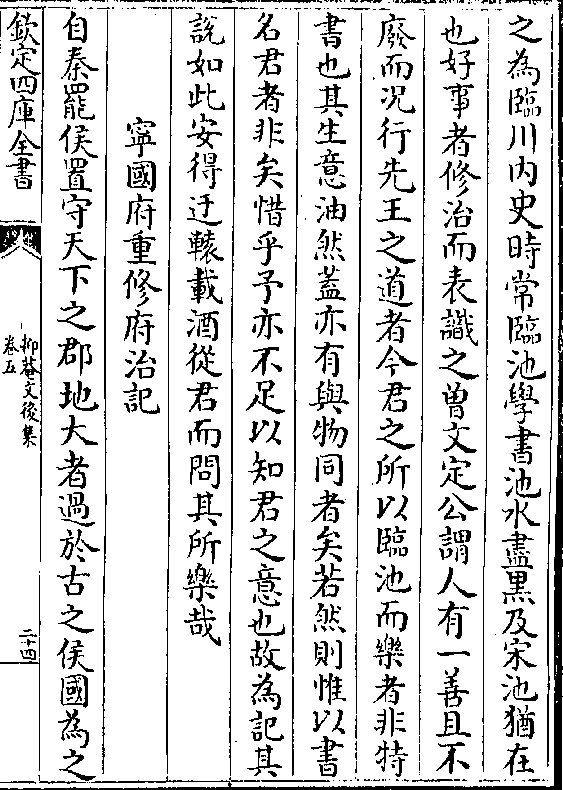 之為臨川内史時常臨池學書池水盡黒及宋池猶在
也好事者修治而表識之曽文定公謂人有一善且不
廢而况行先王之道者今君之所以臨池而樂者非特
書也其生意油然葢亦有與物同者矣若然則惟以書
名君者非矣惜乎予亦不足以知君之意也故為記其
説如此安得迂轅載酒從君而問其所樂哉
寧國府重修府治記
自秦罷侯置守天下之郡地大者過於古之侯國為之
欽定四庫全書
抑菴文後集
卷五
二十四